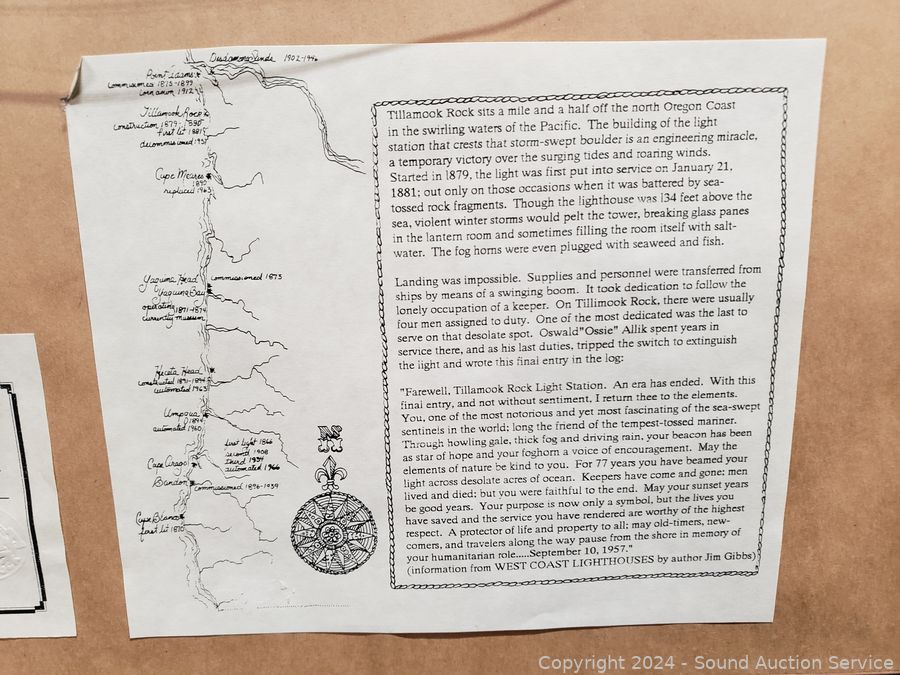 Desdemona Sands 1902-1946
Point Adams
commissioned 1875-1899
torn down 1912
Tillamook Rock
construction 1879-1880
first lit 1881
decommissioned 1957
Cape Meares
1890
replaced 1963
Yaquina Head commissioned 1873
Yaquina Bay
operating 1871-1874
currently museum
Heceta Head
constructed 1891-1894
automated 1963
Umpqua
1894
automated 1960
first light 1866
second 1908
third 1934
automated 1966
Cape Arago
Bandon commissioned 1896-1939
Cape Blanco
first lit 1870
N
Tillamook Rock sits a mile and a half off the north Oregon Coast
in the swirling waters of the Pacific. The building of the light
station that crests that storm-swept boulder is an engineering miracle,
a temporary victory over the surging tides and roaring winds.
Started in 1879, the light was first put into service on January 21,
1881; out only on those occasions when it was battered by sea-
tossed rock fragments. Though the lighthouse was 134 feet above the
sea, violent winter storms would pelt the tower, breaking glass panes
in the lantern room and sometimes filling the room itself with salt-
water. The fog horns were even plugged with seaweed and fish.
Landing was impossible. Supplies and personnel were transferred from
ships by means of a swinging boom. It took dedication to follow the
lonely occupation of a keeper. On Tillimook Rock, there were usually
four men assigned to duty. One of the most dedicated was the last to
serve on that desolate spot. Oswald"Ossie" Allik spent years in
service there, and as his last duties, tripped the switch to extinguish
the light and wrote this final entry in the log:
"Farewell, Tillamook Rock Light Station. An era has ended. With this
final entry, and not without sentiment, I return thee to the elements.
You, one of the most notorious and yet most fascinating of the sea-swept
sentinels in the world; long the friend of the tempest-tossed manner.
Through howling gale, thick fog and driving rain, your beacon has been
as star of hope and your foghorn a voice of encouragement. May the
elements of nature be kind to you. For 77 years you have beamed your
light across desolate acres of ocean. Keepers have come and gone; men
lived and died; but you were faithful to the end. May your sunset years
be good years. Your purpose is now only a symbol, but the lives you
have saved and the service you have rendered are worthy of the highest
respect. A protector of life and property to all; may old-timers, new-
comers, and travelers along the way pause from the shore in memory of
your humanitarian role.....September 10, 1957."
(information from WEST COAST LIGHTHOUSES by author Jim Gibbs)
Copyright 2024 - Sound Auction Service